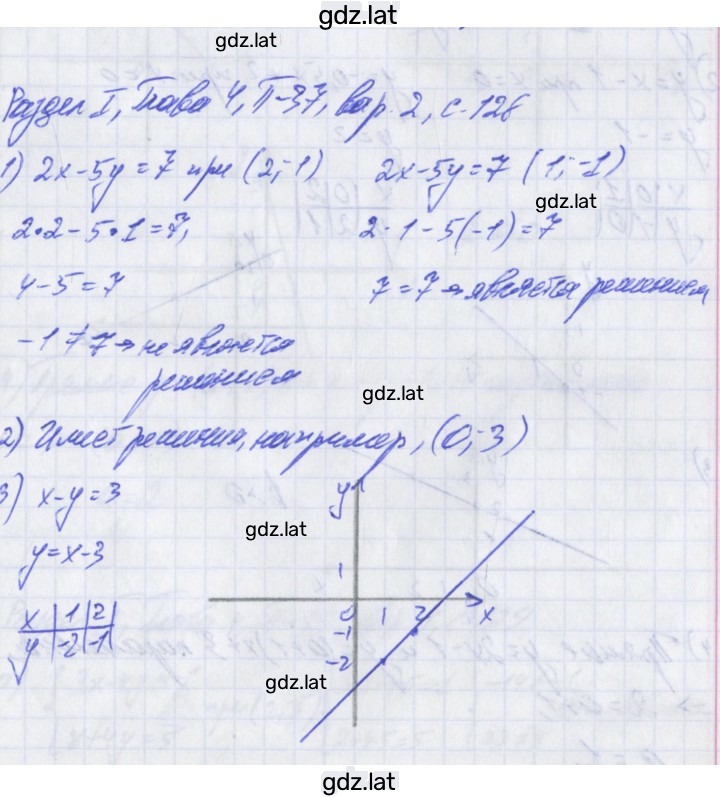 gdz.lat
gdz.lat
Раздел I, Глава 4, П-37, вар. 2, с. 126
1) 2x-5y=7 при (2;-1) 2x-5y=7 (1;-1)
gdz.lat
2•2-5•1=7, 2·1-5(-1)=7
4-5=7 7=7 → является решением
-1≠7 → не является
решением
gdz.lat
2) Имеет решения, например, (0;-3)
3) x-y=3
y
gdz.lat
y=x-3
1
x | 1 | 2 |
y | -2 | -1 |
0 1 2 x
-1
-2
gdz.lat
gdz.lat